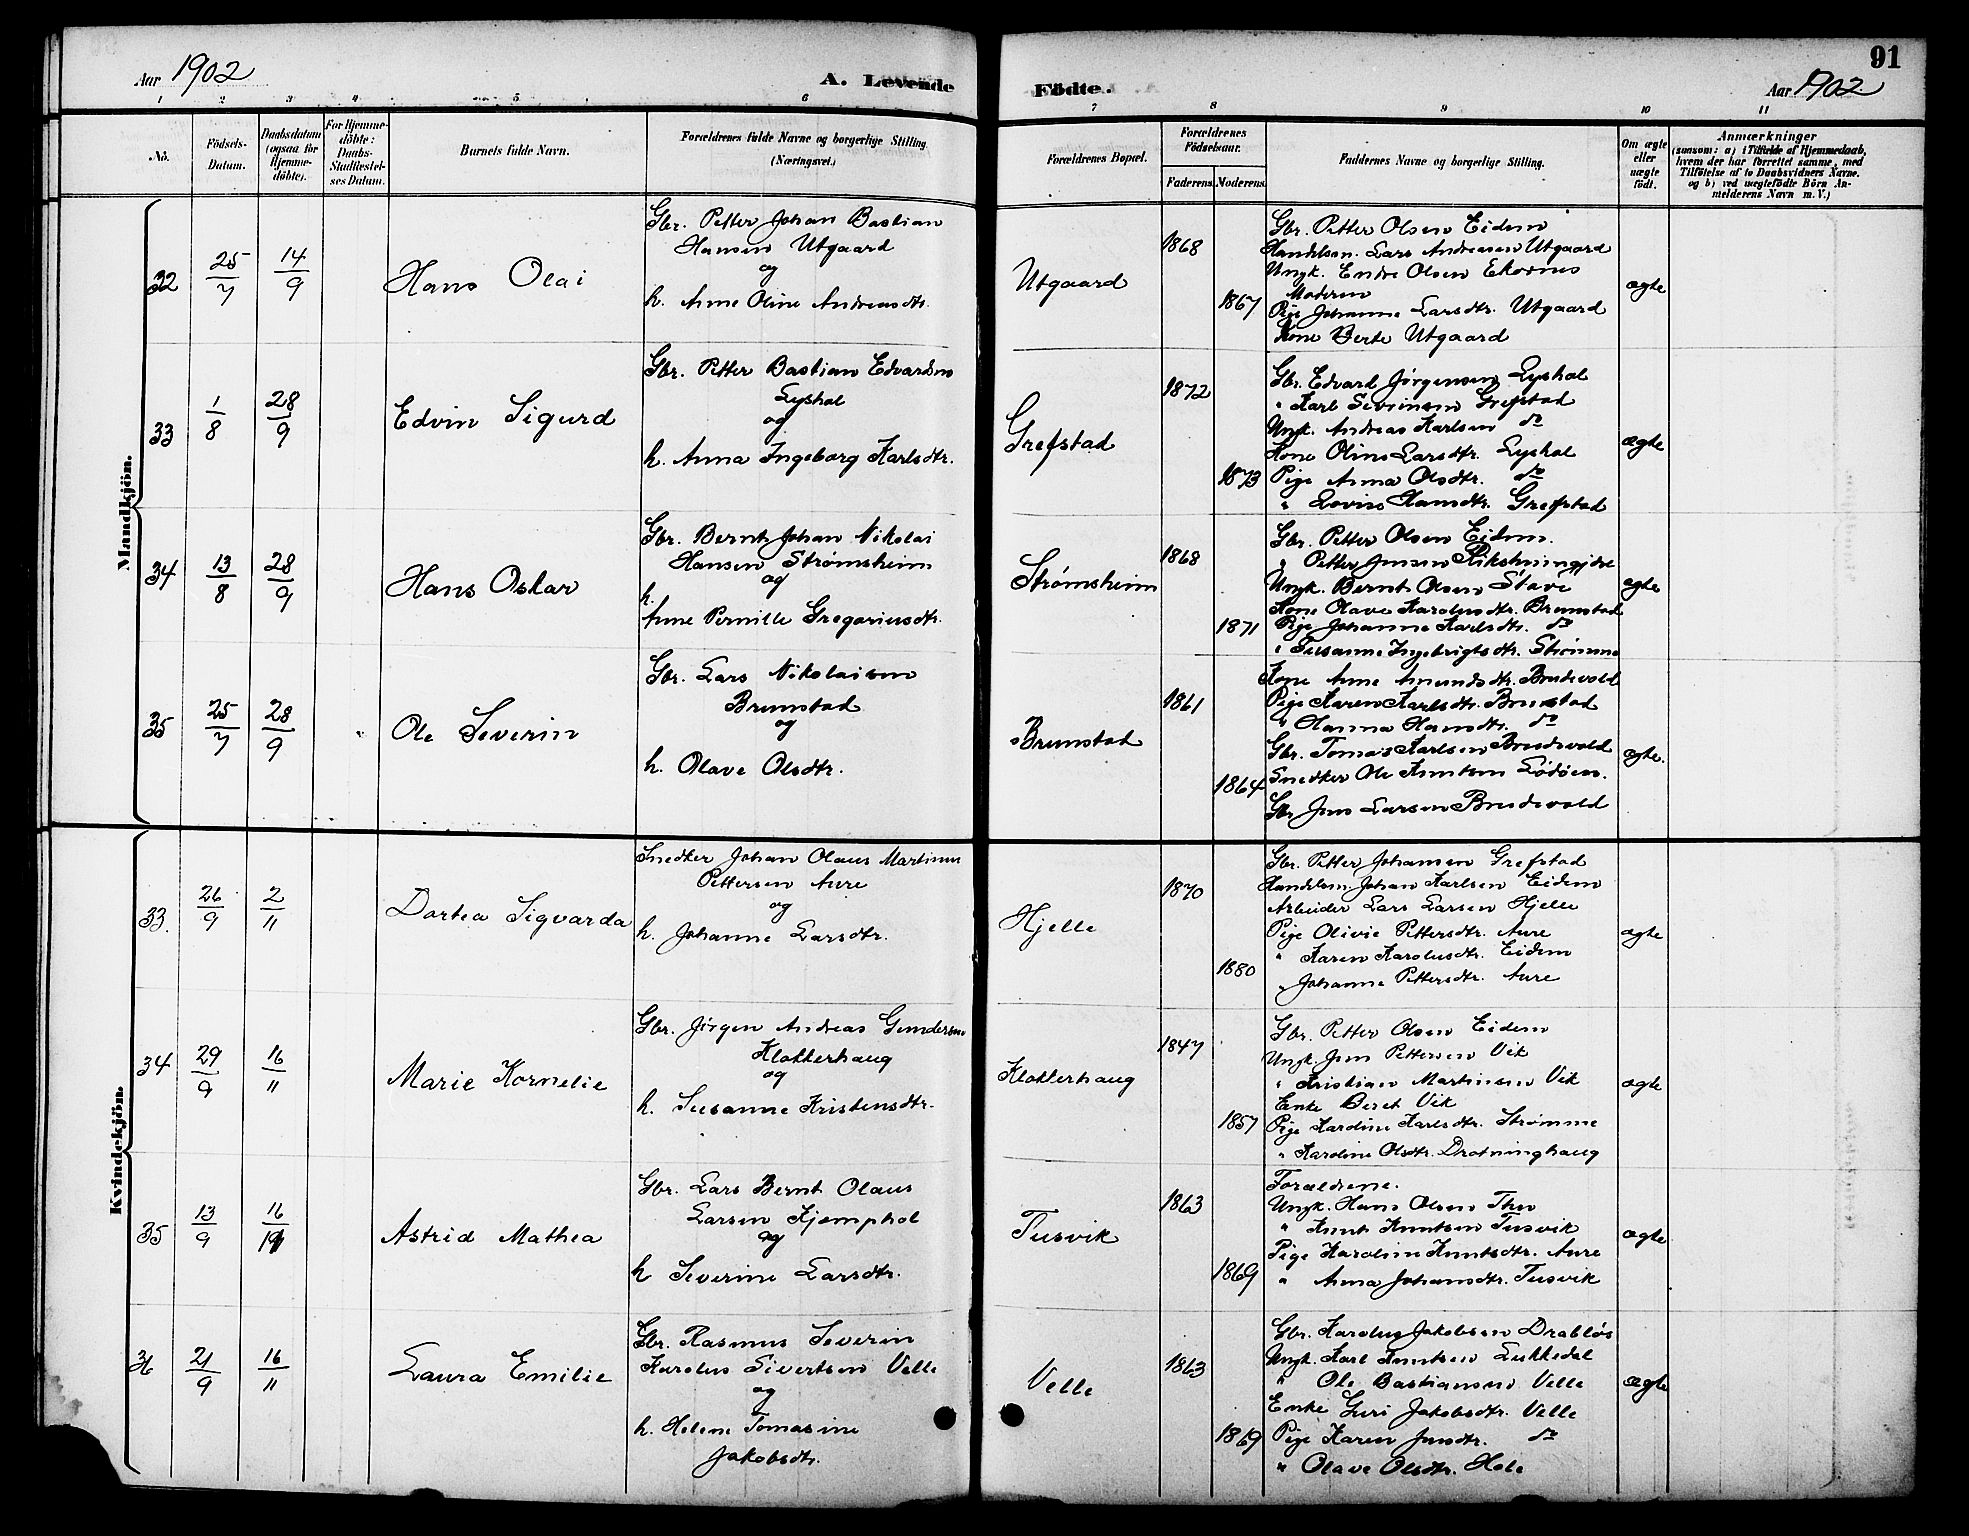 Aar 1902
A. Levende
Födte.
91
Aar 1902
1 2 3 4 5 6 7 8 9 10 11
No.
Födsels-
Datum.
Daabsdatum
(ogsaa for
Hjemme-
döbte).
For Hjemme-
döbte:
Daabs-
Stadfæstel-
ses Datum.
Barnets fulde Navn.
Forældrenes fulde Navne og borgerlige Stilling
(Næringsvei.)
Forældrenes Bopæl.
Forældrenes
Födselsaar.
Faderens. Moderens.
Faddernes Navne og borgerlige Stilling.
Om ægte
eller
uægte
födt.
Anmærkninger
(saasom: a) i Tilfælde af Hjemmedaab,
hvem der har forrettet samme, med
Tilföielse af to Daabsvidners Navne,
og b) ved uægtefödte Börn An-
melderens Navn m. V.)
Mandkjön.
32
25/7
14/9
Hans Olai
Gbr. Petter Johan Bastian
Hansen Utgaard
og
h. Anne Oline Andreasdtr.
Utgaard
1868
1867
Gbr. Petter Olsen Eidem
Handelsm. Lars Andreasen Utgaard
Ungk. Endre Olsen Ekornes
Moderen
Pige Johanne Larsdtr. Utgaard
Kone Berte Utgaard
ægte
33
1/8
28/9
Edvin Sigurd
Gbr. Petter Bastian Edvardsen
Lyshol
og
h. Anna Ingeborg Karlsdtr.
Grefstad
1872
1873
Gbr. Edvard Jørgensen Lyshol
" Karl Sivrinsen Grefstad
Ungk. Andreas Karlsen do
Kone Oline Larsdtr. Lyshol
Pige Anna Olsdtr. do
" Lovise Hansdtr. Grefstad
ægte
34
13/8
28/9
Hans Oskar
Gbr. Bernt Johan Nikolai
Hansen Strømsheim
og
h.
Anne Pernille Gregoriusdtr.
Strømsheim
1868
1871
Gbr. Petter Olsen Eidem.
" Petter Jensen
Ungk. Bernt Olsen Stave
Kone Olave Karolusdtr. Brunstad
Pige Johanne Karlsdtr. do
" Susanne Ingebrigtsdtr. Strømme
ægte
35
25/7
28/9
"
Ole Severin
Gbr. Lars Nikolaisen
Brunstad
og
h. Olave Olsdtr.
Brunstad
1861
1864
Kone Anne Amundsdtr. Brudevold
Pige Karen Karlsdtr. Brunstad
" Hanna Hansdtr. do
Gbr. Tomas Karlsen Brudevold
Snedker Ole Knutsen Lødøen.
Gbr Jens Larsen Brudevold
ægte.
Kvindekjön.
33.
26/9
2/11
Dortea Sigvarda
Snedker Johan Olaus Martinus
Pettersen Aure
og
h. Johanne Larsdtr.
Hjelle
1870
1880
Gbr. Petter Johansen Grefstad
Handelsm. Johan Karlsen Eidem
Arbeider Lars Larsen Hjelle
Pige Olivie Pettersdtr. Aure
" Karen Karolusdtr. Eidem
" Johanne Pettersdtr. Aure
ægte
34
29/9
16/11
Marie Kornelie
Gbr. Jørgen Andreas Gundersen
Klokkerhaug
og
h. Susanne Kristensdtr.
Klokkerhaug
1847
1857
Gbr. Petter Olsen Eidem
Ungk. Jens Pettersen Vik
" Kristian Martinsen Vik
Enke Beret Vik
Pige Kardine Karlsdtr. Strømme
" Kardine Olsdtr. Drotninghaug
ægte
35
13/9
16/11
Astrid Mathea
Gbr. Lars Bernt Olaus
Larsen Kjemphol
og
h Severine Larsdtr.
Tusvik
1863
1869
Forældrene.
Ungk. Hans Olsen Thu
" Knut Knutsen Tusvik
Pige Karoline Knutsdtr. Aure
" Anna Johansdtr. Tusvik
ægte
36
21/9
16/11
Laura Emilie
Gbr. Rasmus Severin
Karolus Sivertsen Velle
og
h. Helene Tomasine
Jakobsdtr.
Velle
1863
1869
Gbr. Karolus Jakobsen Drabløs
Ungk. Karl Knutsen Lukkedal
" Ole Bastiansen Velle
Enke Guri Jakobsdtr. Velle
Pige Karen Jensdtr. do
" Olave Olsdtr. Hole
ægte